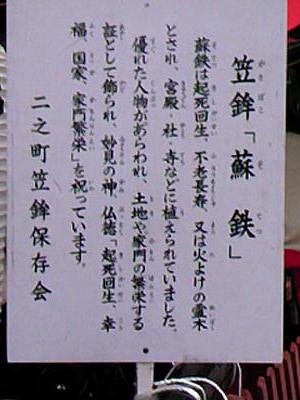 笠鉾「蘇鉄」
蘇鉄は起死回生、不老長寿、又は火よけの霊木
とされ、宮殿・社・寺などに植えられていました。
優れた人物があらわれ、土地や家門の繁栄する
証として飾られ、妙見の神、仏徳「起死回生、幸
福、国家、家門繁栄」を祝っています。
二之町笠鉾保存会